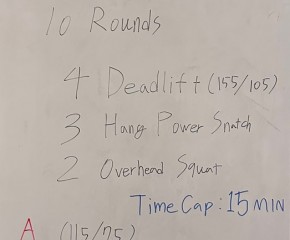 10 Rounds
4 Deadlift (155/105)
3 Hang Power Snatch
2 Overhead Squat
Time Cap: 15 MIN
A (115/75)